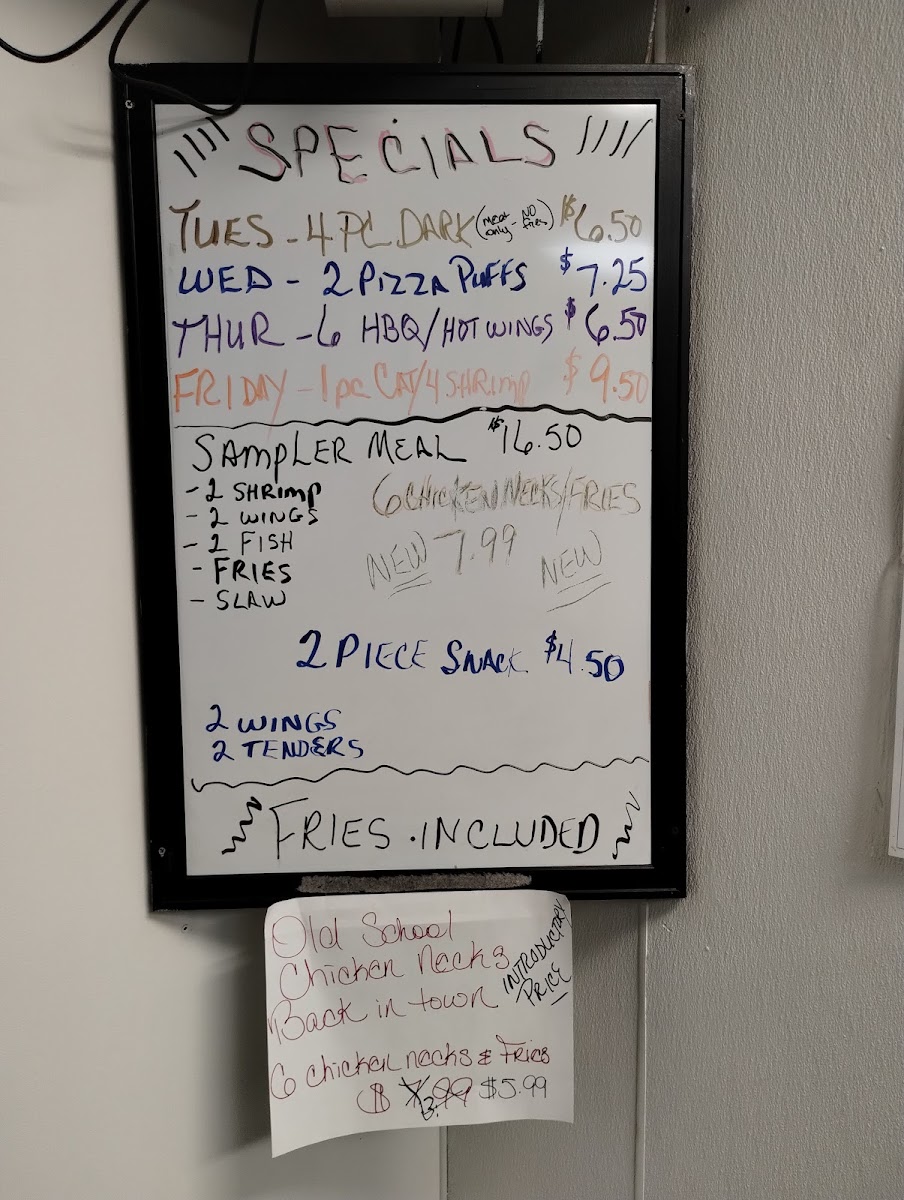 SPECIALS
TUES - 4 PC DARK (meat only - NO fries) $6.50
WED - 2 PIZZA PUFFS $7.25
THUR - 6 HBQ/HOT WINGS $6.50
FRIDAY - 1 pc CAT/4 SHRIMP $9.50
SAMPLER MEAL $16.50
- 2 SHRIMP
- 2 WINGS
- 2 FISH
- FRIES
- SLAW
6 CHICKEN NECKS/FRIES
NEW 7.99 NEW
2 PIECE SNACK $4.50
2 WINGS
2 TENDERS
FRIES INCLUDED
Old School
Chicken Necks
Back in town
INTRODUCTORY
PRICE
6 chicken necks & Fries
$ .99 $5.99